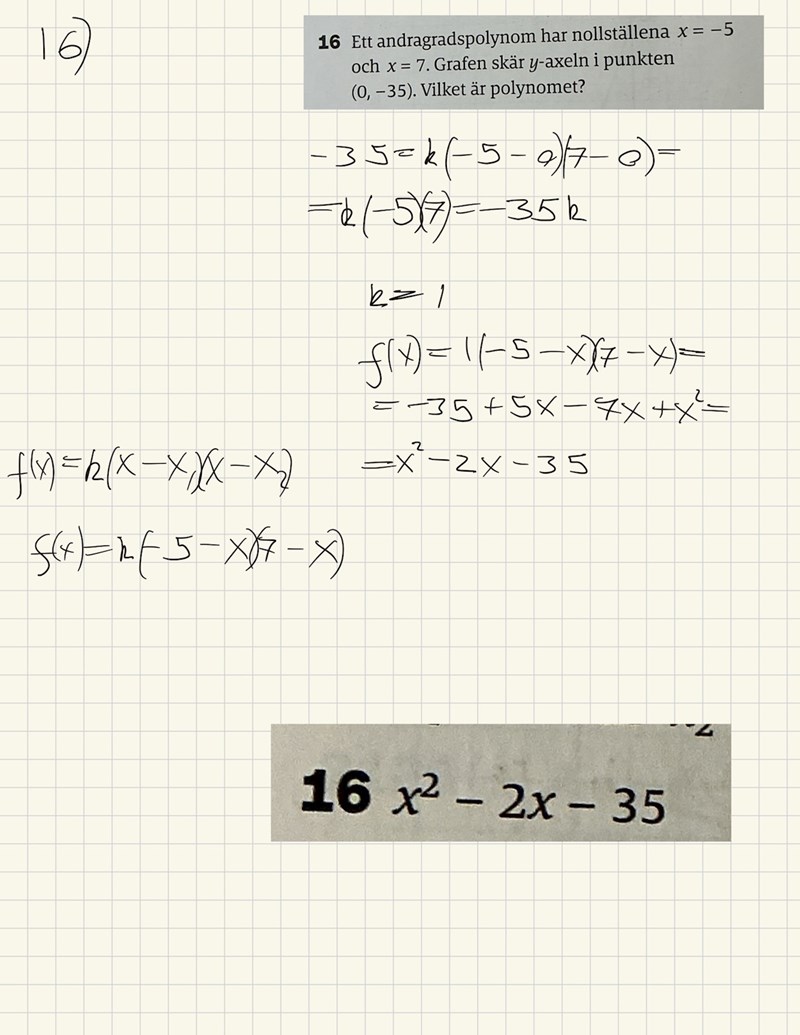 16)
16 Ett andragradspolynom har nollställena x = −5
och x = 7. Grafen skär y-axeln i punkten
(0, −35). Vilket är polynomet?
-35=k(-5-0)(7-0)=
=k(-5)(7)=-35k
k=1
f(x)=1(-5-x)(7-x)=
=-35+5x-7x+x²=
=x²-2x-35
f(x)=k(x-x₁)(x-x₂)
f(x)=k(-5-x)(7-x)
16 x² − 2x − 35